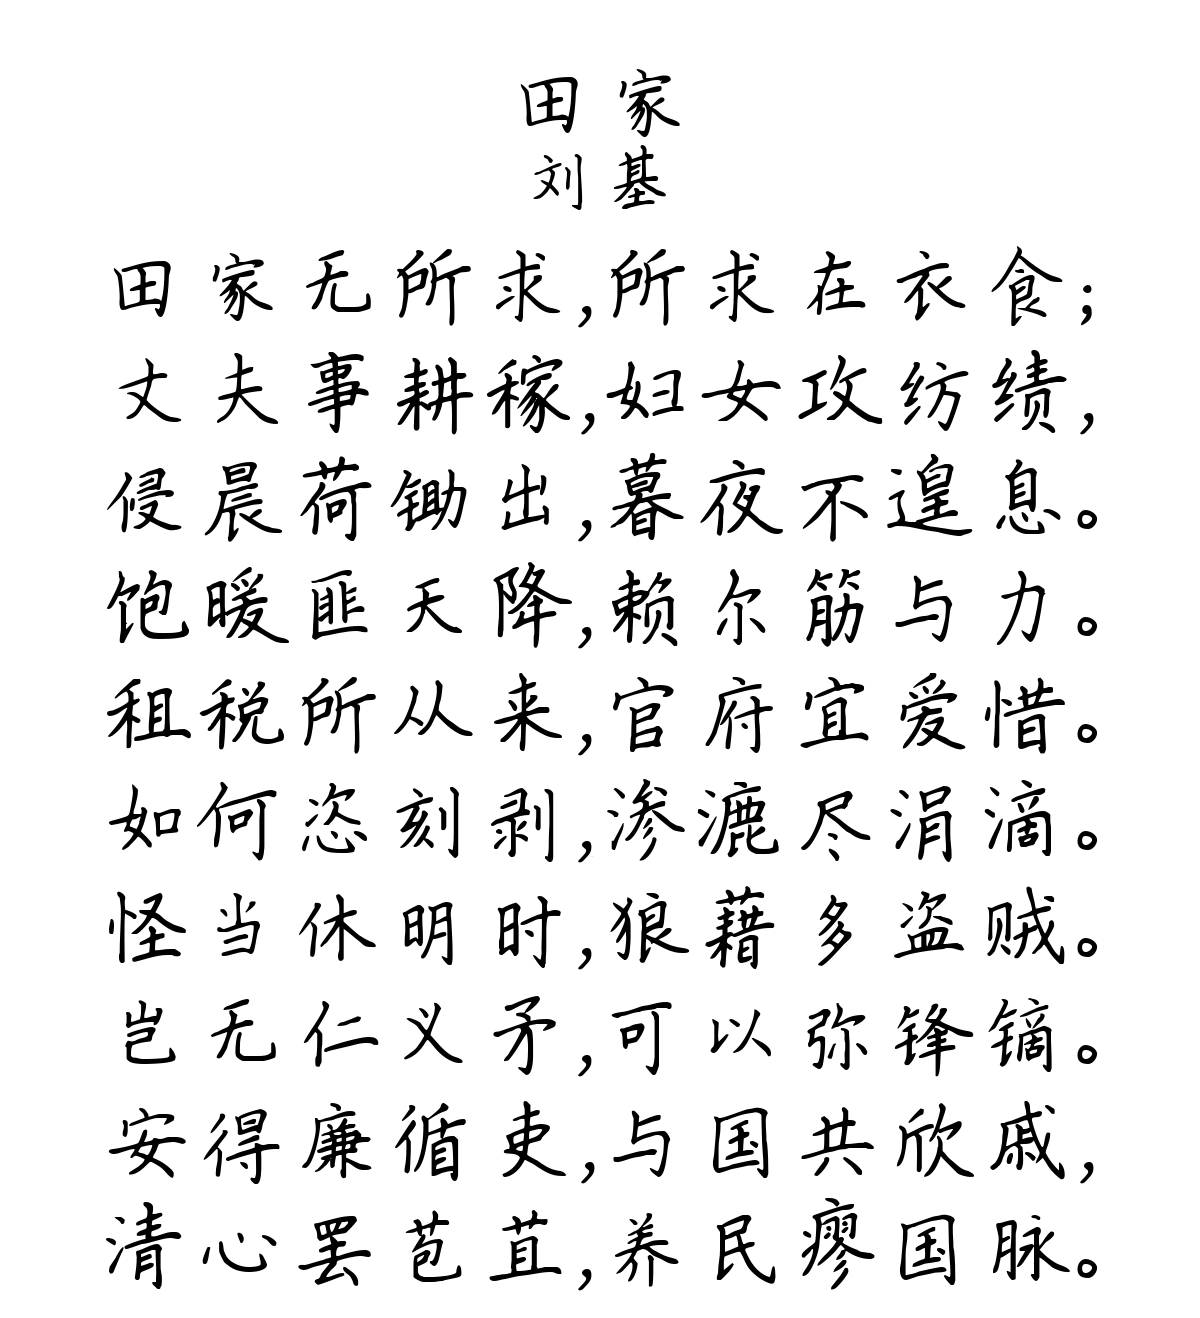 田家
刘基
田家无所求,所求在衣食;
丈夫事耕稼,妇女攻纺绩,
侵晨荷锄出,暮夜不遑息。
饱暖匪天降,赖尔筋与力。
租税所从来,官府宜爱惜。
如何恣刻剥,渗漉尽涓滴。
怪当休明时,狼藉多盗贼。
岂无仁义矛,可以弥锋镝。
安得廉循吏,与国共欣戚,
清心罢苞苴,养民瘳国脉。